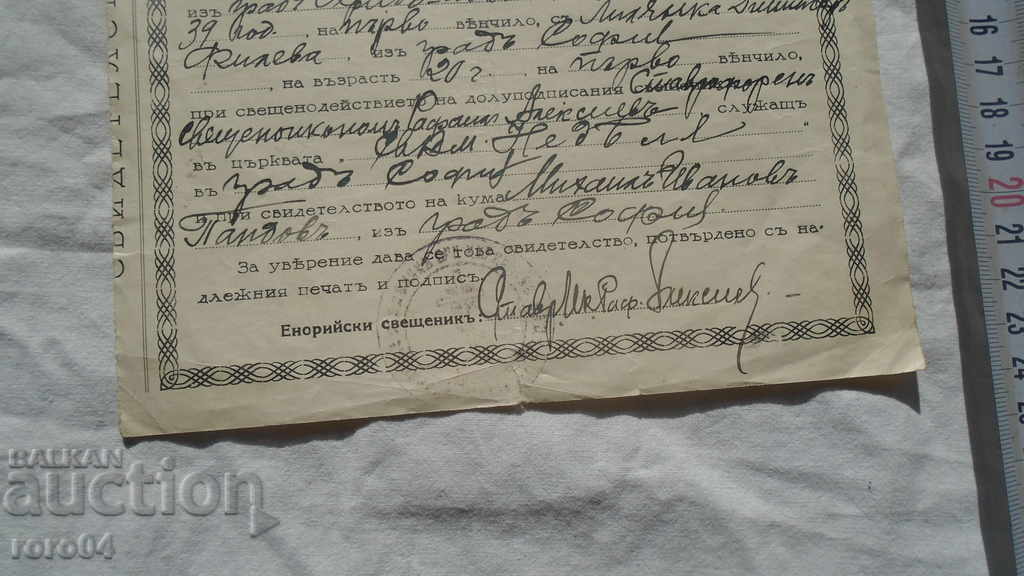 изъ градъ
39 год. на първо вѣнчило, съ Лиляна Димитър
Филева, изъ градъ София
на възрасть 20 г. на първо вѣнчило,
при свещенодействието на долуподписания Ставрофоренъ
Свещеноикономъ Рафаилъ Алексиевъ служащъ
въ църквата „ Недѣля "
въ градъ София
и при свидетелството на кума Михаилъ Ивановъ
Пандовъ, изъ градъ София
За увѣрение дава се това свидетелство, потвърдено съ на-
длежния печатъ и подпись
Енорийски свещеникъ: Ставр. Ик. Раф. Алексиев
СВИДЕТЕЛС
16
17
18
19
20
21
22
23
24
25
BALKAN
auction
roro04